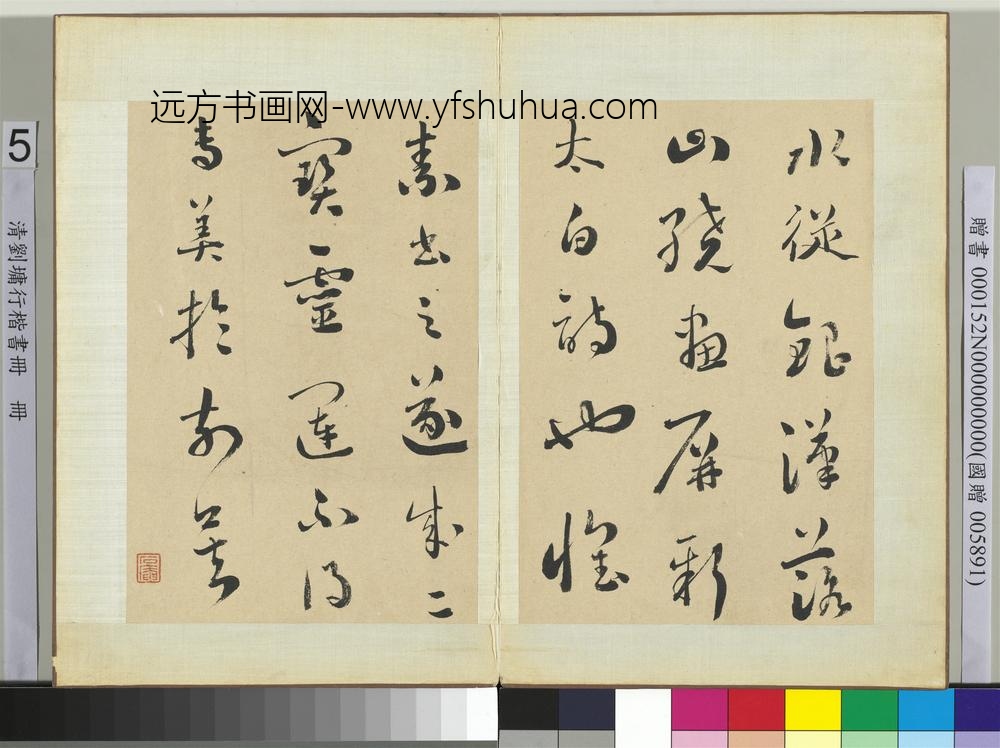 远方书画网-www.yfshuhua.com
水從銀漢落
山繞畫屏新
太白詩也懷
素書之遂成二
寶靈運不得
專美於前矣
5
清劉墉行楷書冊 冊
贈書 000152N000000000(國贈 005891)